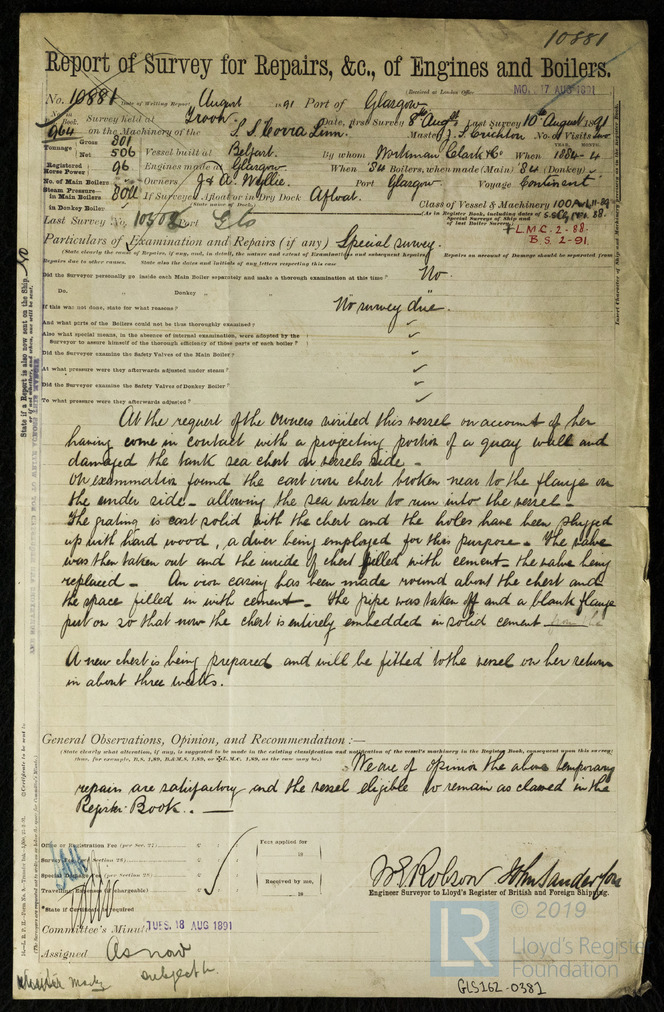 10881
Report of Survey for Repairs, &c., of Engines and Boilers.
(Received at London Office MO. 17 AUG 1891
No. 10881 Date of Writing Report August 1891 Port of Glasgow
No. in Reg. Book. Survey held at Troon Date, First Survey 8th Augt. Last Survey 10th August 1891
964 on the Machinery of the S.S. Corra Linn. Master J. Erichton No. of Visits two
Tonnage Gross 801 Net 506 Vessel built at Belfast. By whom Workman Clark & Co When 1884-4
Registered Horse Power 96 Engines made at Glasgow When 84 Boilers, when made (Main) 84 (Donkey)
No. of Main Boilers Owners J & A. Wyllie. Port Glasgow Voyage Continent
Steam Pressure in Main Boilers 80 lb If Surveyed Afloat or in Dry Dock Afloat.
(State name of Dock.)
in Donkey Boiler Class of Vessel & Machinery 100A1
(As in Register Book, including dates of Special Surveys of Ship and of last Boiler Survey)
Last Survey No. 10502 Port Gls
L.M.C. 2-88.
B.S. 2-91.
Particulars of Examination and Repairs (if any) Special survey.
Did the Surveyor personally go inside each Main Boiler separately and make a thorough examination at this time? No.
Do. Donkey " " "
If this was not done, state for what reasons? No survey due.
And what parts of the Boilers could not be thoroughly examined?
Also what special means, in the absence of internal examination, were adopted by the
Surveyor to assure himself of the thorough efficiency of those parts of each boiler?
Did the Surveyor examine the Safety Valves of the Main Boiler?
At what pressure were they afterwards adjusted under steam?
Did the Surveyor examine the Safety Valves of Donkey Boiler?
To what pressure were they afterwards adjusted?
At the request of the Owners visited this vessel on account of her
having come in contact with a projecting portion of a quay wall and
damaged the tank sea chest on vessels side -
On examination found the cast iron chest broken near to the flange on
the under side - allowing the sea water to run into the vessel -
The grating is cast solid with the chest and the holes have been plugged
up with hard wood, a diver being employed for this purpose - The valve
was then taken out and the inside of chest filled with cement - the valve being
replaced - An iron casing has been made round about the chest and
the space filled in with cement - The pipe was taken off and a blank flange
put on so that now the chest is entirely embedded in solid cement
A new chest is being prepared and will be fitted to the vessel on her return
in about three weeks.
General Observations, Opinion, and Recommendation :—
(State clearly what alteration, if any, is suggested to be made in the existing classification and notification of the vessel's machinery in the Register Book, consequent upon this survey;
thus, for example, B.S. 1,89, B.&M.S. 1,89, or L.M.C. 1,89, as the case may be.)
We are of opinion the above temporary
repairs are satisfactory and the vessel eligible to remain as classed in the
Register Book. —
Office or Registration Fee (per Sec. 27) £ Fees applied for
Survey Fee (per Section 28) £ 18
Special Damage Fee (per Section 28) £
Travelling Expenses (if chargeable) £ Received by me,
*State if Certificate is required 18
W E Robson John Sanderson
Engineer Surveyor to Lloyd's Register of British and Foreign Shipping.
Committee's Minute TUES. 18 AUG 1891
Assigned As now
subject
© 2019
LR
Lloyd's Register
Foundation
GLS162-0381